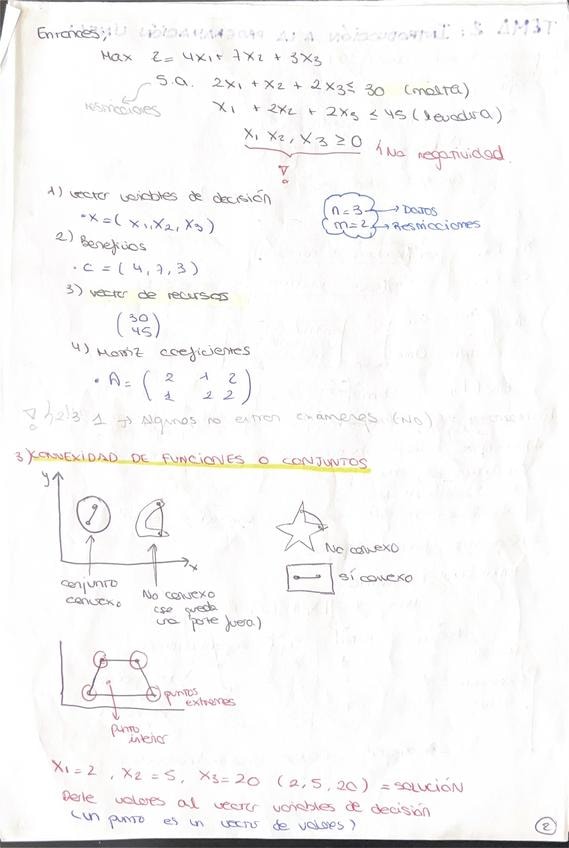 Entonces,
Max Z = 4x1 + 7x2 + 3x3
S.a. 2x1 + x2 + 2x3 ≤ 30 (malta)
restricciones
x1 + 2x2 + 2x3 ≤ 45 (levadura)
x1 x2, x3 ≥ 0 } No negatividad
1) vector variables de decisión
• x = (x1, x2, x3)
n=3 → Datos
m=2 → Restricciones
2) Beneficios
• C = (4, 7, 3)
3) vector de recursos
(30
45)
4) Matriz coeficientes
• A = (2 1 2
1 2 2)
Algunos no entran exámenes (NO)
3) CONVEXIDAD DE FUNCIONES O CONJUNTOS
y
x
conjunto
convexo
No convexo
(se queda
una parte fuera)
No convexo
sí convexo
puntos
extremos
punto
interior
x1 = 2, x2 = 5, x3 = 20 (2, 5, 20) = solución
Darle valores al vector variables de decisión
(un punto es un vector de valores)
2